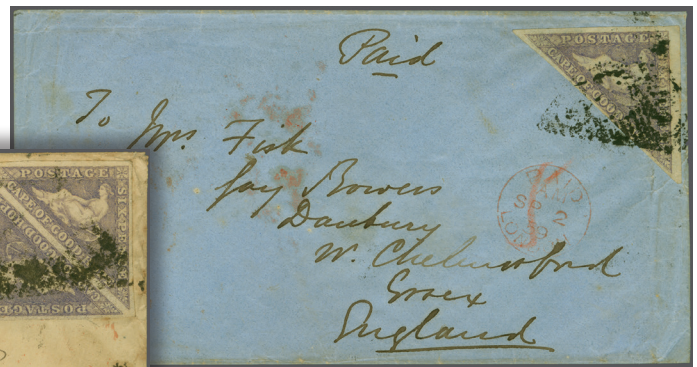 Paid
POSTAGE
CAPE OF GOOD
To Mrs. Fisk
Jay Bowers
Danbury
W. Chelmsford
Essex
England
PAID
SP 2
POSTAGE
SIXPE
CAPE OF GOOD
POSTAGE